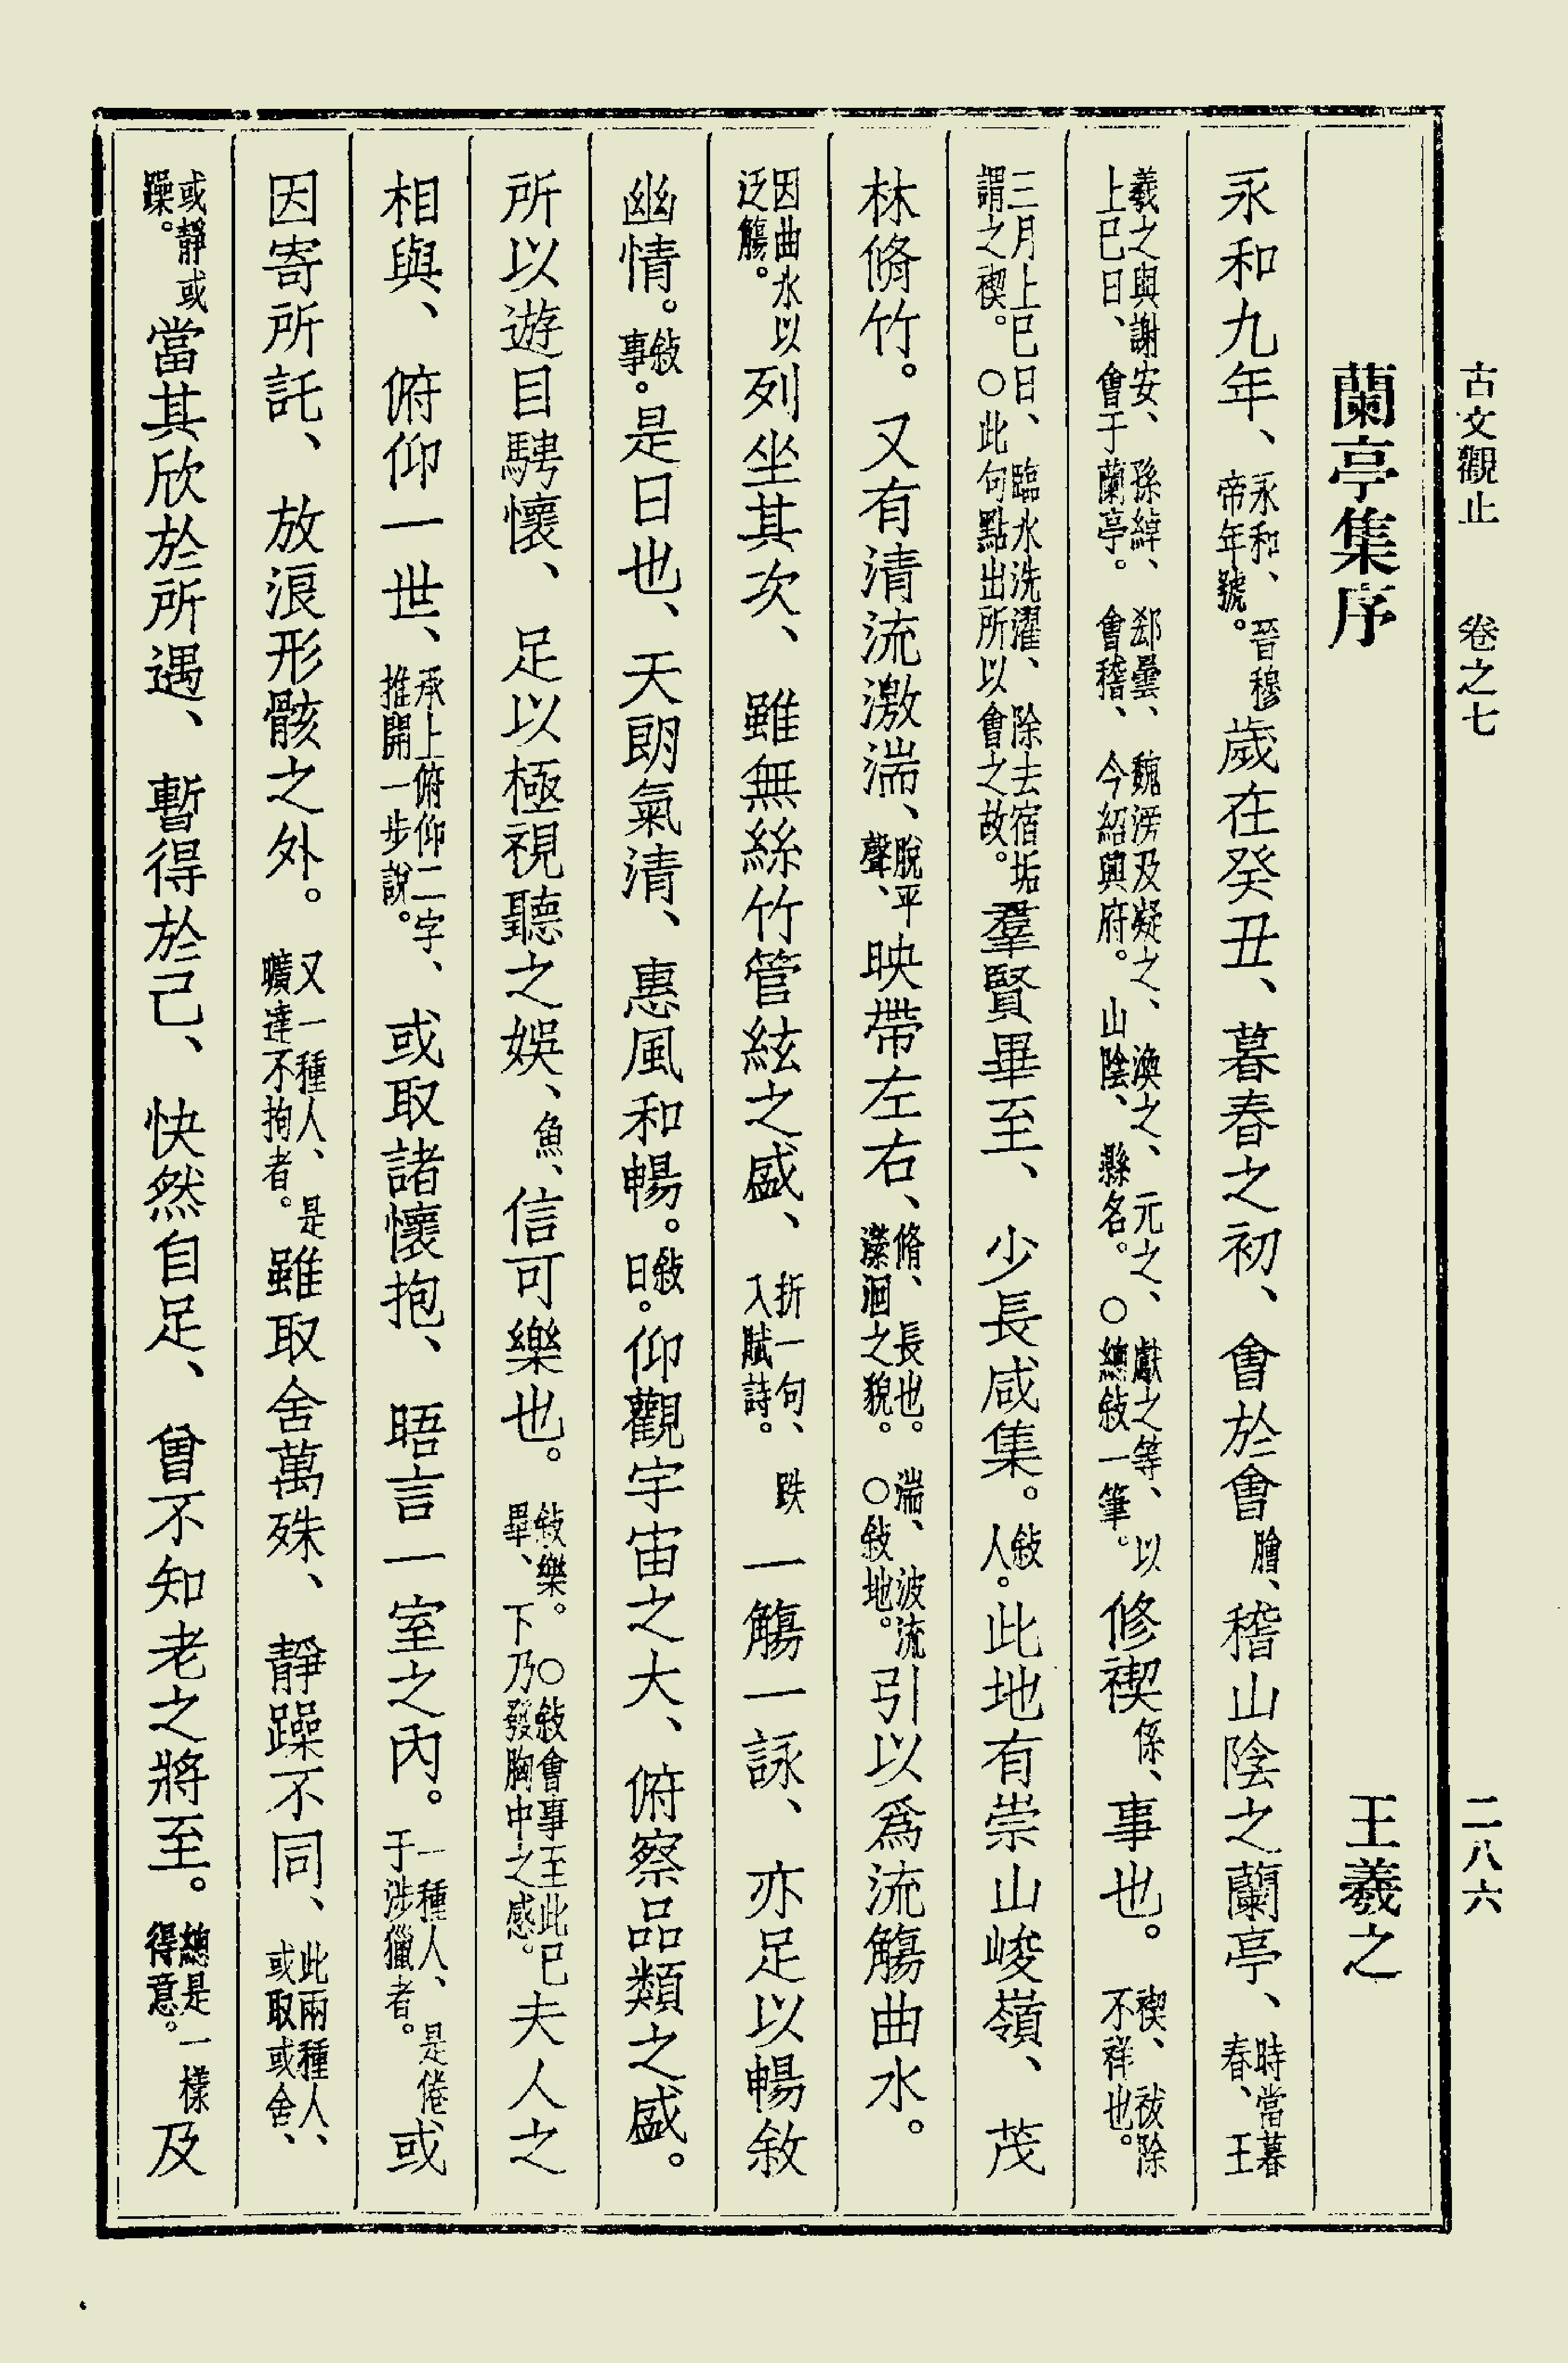 古文觀止　卷之七　二八六
蘭亭集序　王羲之
永和九年、永和、晉穆帝年號。歲在癸丑、暮春之初、會於會膾、稽山陰之蘭亭、時當暮春、王
羲之與謝安、孫綽、郄曇、魏滂及凝之、渙之、元之、獻之等、以上巳日、會于蘭亭。會稽、今紹興府。山陰、縣名。○總敍一筆。修禊係、事也。禊、祓除不祥也。
三月上巳日、臨水洗濯、除去宿垢、謂之禊。○此句點出所以會之故。羣賢畢至、少長咸集。敍人。此地有崇山峻嶺、茂
林脩竹。又有清流激湍、脫平聲、映帶左右、脩、長也。湍、波流瀠洄之貌。○敍地。引以爲流觴曲水。
因曲水以泛觴。列坐其次、雖無絲竹管絃之盛、折一句、跌入賦詩。一觴一詠、亦足以暢敘
幽情。敍事。是日也、天朗氣清、惠風和暢。敍日。仰觀宇宙之大、俯察品類之盛。
所以遊目騁懷、足以極視聽之娛、魚、信可樂也。敍樂。○敍會事至此已畢、下乃發胸中之感。夫人之
相與、俯仰一世、承上俯仰二字、推開一步說。或取諸懷抱、晤言一室之內。一種人、是倦于涉獵者。或
因寄所託、放浪形骸之外。又一種人、是曠達不拘者。雖取舍萬殊、靜躁不同、此兩種人、或取或舍、
或靜或躁。當其欣於所遇、暫得於己、快然自足、曾不知老之將至。總是一樣得意。及